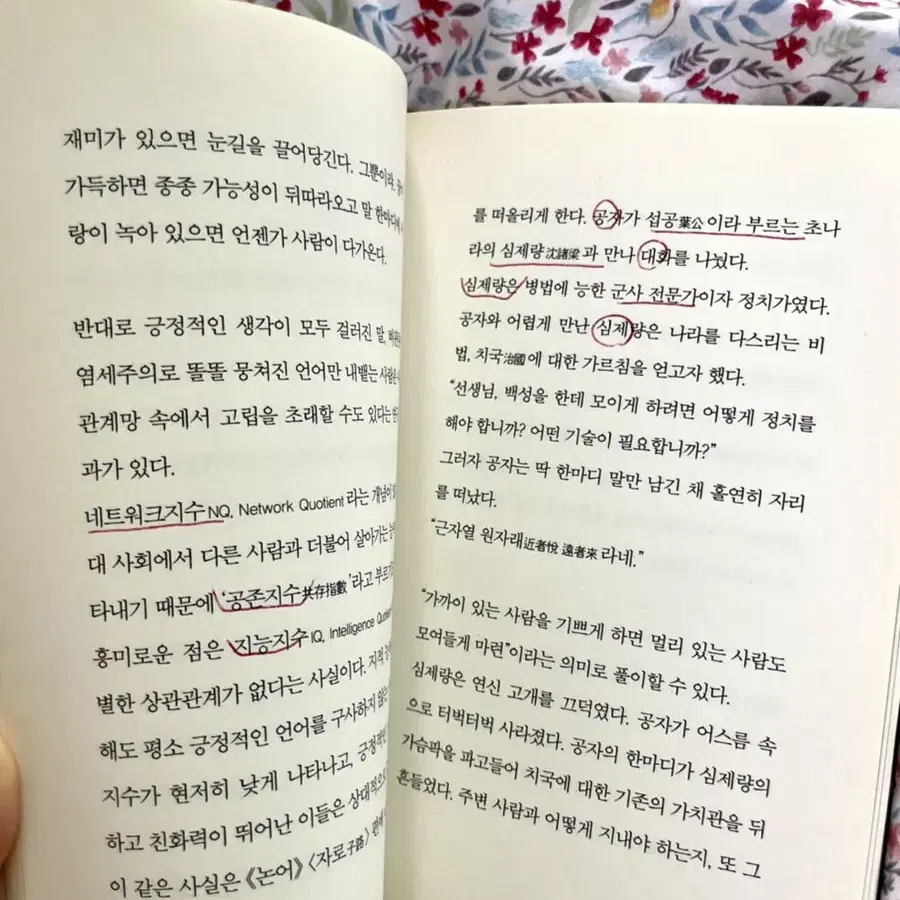 재미가 있으면 눈길을 끌어당긴다. 그뿐이랴.
가득하면 종종 가능성이 뒤따라오고 말 한마디에
랑이 녹아 있으면 언젠가 사람이 다가온다.
반대로 긍정적인 생각이 모두 걸러진 말,
염세주의로 똘똘 뭉쳐진 언어만 내뱉는 사람은
관계망 속에서 고립을 초래할 수도 있다는
과가 있다.
네트워크지수NQ, Network Quotient라는 개념이
대 사회에서 다른 사람과 더불어 살아가는
타내기 때문에 '공존지수共存指數'라고 부르기
흥미로운 점은 지능지수IQ, Intelligence Quotient
별한 상관관계가 없다는 사실이다. 지적
해도 평소 긍정적인 언어를 구사하지 않는
지수가 현저히 낮게 나타나고, 긍정적인
하고 친화력이 뛰어난 이들은 상대적으로
이 같은 사실은 《논어》 〈자로子路〉 편에
를 떠올리게 한다. 공자가 섭공葉公이라 부르는 초나
라의 심제량沈諸梁과 만나 대화를 나눴다.
심제량은 병법에 능한 군사 전문가이자 정치가였다.
공자와 어렵게 만난 심제량은 나라를 다스리는 비
법, 치국治國에 대한 가르침을 얻고자 했다.
"선생님, 백성을 한데 모이게 하려면 어떻게 정치를
해야 합니까? 어떤 기술이 필요합니까?"
그러자 공자는 딱 한마디 말만 남긴 채 홀연히 자리
를 떠났다.
"근자열 원자래近者悅 遠者來라네."
"가까이 있는 사람을 기쁘게 하면 멀리 있는 사람도
모여들게 마련"이라는 의미로 풀이할 수 있다.
심제량은 연신 고개를 끄덕였다. 공자가 어스름 속
으로 터벅터벅 사라졌다. 공자의 한마디가 심제량의
가슴팍을 파고들어 치국에 대한 기존의 가치관을 뒤
흔들었다. 주변 사람과 어떻게 지내야 하는지, 또 그